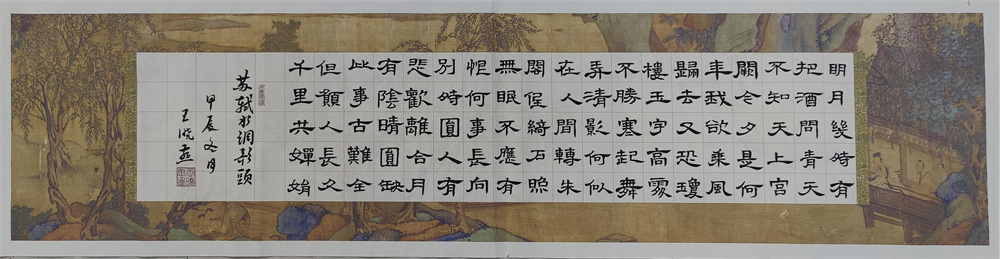 明月幾時有
把酒問青天
不知天上宫
闕今夕是何
年我欲乘風
歸去又恐瓊
樓玉宇高處
不勝寒起舞
弄清影何似
在人間轉朱
閣低綺户照
無眠不應有
恨何事長向
别時圓人有
悲歡離合月
有陰晴圓缺
此事古難全
但願人長久
千里共嬋娟
苏軾水調歌頭
甲辰冬月
王晓燕